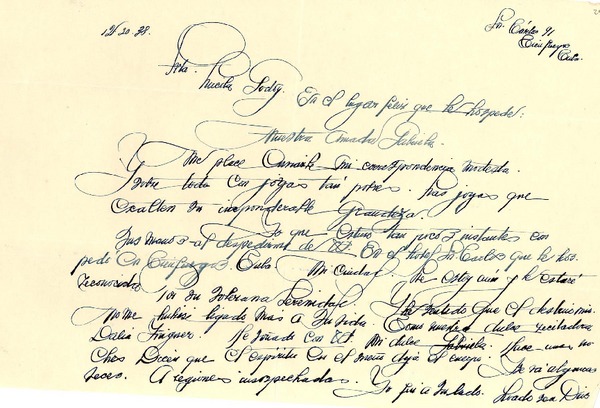 12/20.38.
Sn. Cárlos 91
Cienfuegos
Cuba.
Srta.
En el lugar feliz que la hospede:
Nuestra Amada Gabriela.
Y me place mi correspondencia modesta.
Sobre todo con joyas tan pobres. Las joyas que
exaltan su imponderable grandeza.
Yo que estuve tan pocos instantes con
sus manos al despedirme de Ud. En el hotel Sn. Carlos que la hos
pedó en Cienfuegos. Cuba. Mi Ciudad. Le estoy aún y le estaré
reconocida por su soberana serenidad.
que el destino mi
no me hubiese ligado más a su vida. Como nuestra dulce recitadora
Dalia Iñiguez. He soñado con Ud. Mi dulce Gabriela. Hace unas no
ches. Dicen que el espíritu en el sueño deja el cuerpo. Se va algunas
veces. A regiones insospechadas. Yo fui a su lado. Loado sea Dios